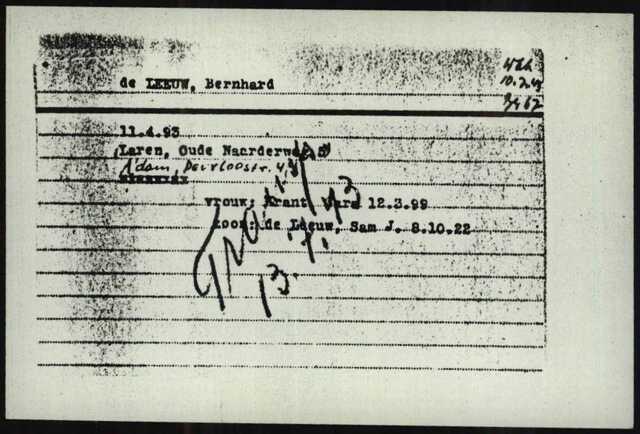 de LEEUW, Bernhard
10.2.43
11.4.93
Laren, Oude Naarderweg 5
A'dam, Deurloostr.
vrouw: Krant, Mara 12.3.99
zoon: de Leeuw, Sam J. 8.10.22
13.7.43